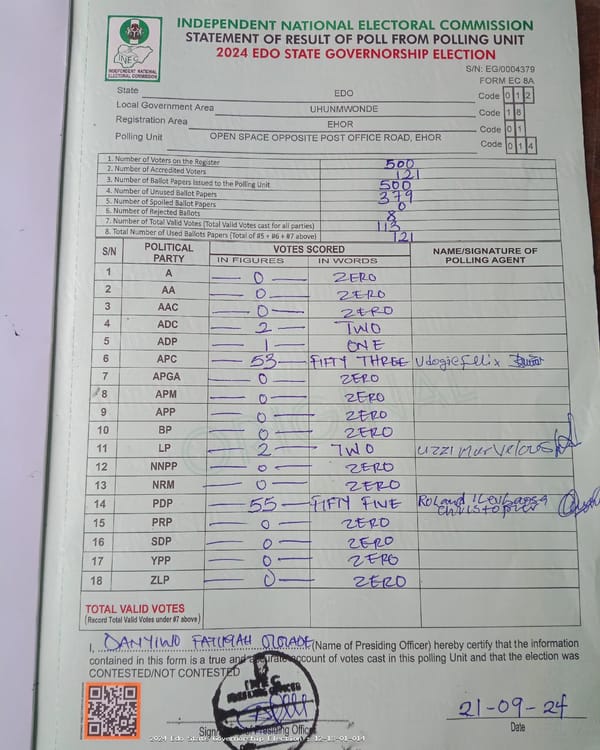 INDEPENDENT NATIONAL ELECTORAL COMMISSION
STATEMENT OF RESULT OF POLL FROM POLLING UNIT
2024 EDO STATE GOVERNORSHIP ELECTION
INEC
INDEPENDENT NATIONAL
ELECTORAL COMMISSION
S/N: EG/0004379
FORM EC 8A
State EDO Code 0 1 2
Local Government Area UHUNMWONDE Code 1 8
Registration Area EHOR Code 0 1
Polling Unit OPEN SPACE OPPOSITE POST OFFICE ROAD, EHOR Code 0 1 4
1. Number of Voters on the Register 500
2. Number of Accredited Voters 121
3. Number of Ballot Papers Issued to the Polling Unit 500
4. Number of Unused Ballot Papers 379
5. Number of Spoiled Ballot Papers 0
6. Number of Rejected Ballots 8
7. Number of Total Valid Votes (Total Valid Votes cast for all parties) 113
8. Total Number of Used Ballots Papers (Total of #5 + #6 + #7 above) 121
S/N POLITICAL PARTY VOTES SCORED NAME/SIGNATURE OF POLLING AGENT
IN FIGURES IN WORDS
1 A 0 ZERO
2 AA 0 ZERO
3 AAC 0 ZERO
4 ADC 2 TWO
5 ADP 1 ONE
6 APC 53 FIFTY THREE Udogie Felix
7 APGA 0 ZERO
8 APM 0 ZERO
9 APP 0 ZERO
10 BP 0 ZERO
11 LP 2 TWO UZZI Marvelous
12 NNPP 0 ZERO
13 NRM 0 ZERO
14 PDP 55 FIFTY FIVE Roland
15 PRP 0 ZERO
16 SDP 0 ZERO
17 YPP 0 ZERO
18 ZLP 0 ZERO
TOTAL VALID VOTES
(Record Total Valid Votes under #7 above)
I, (Name of Presiding Officer) hereby certify that the information
contained in this form is a true and accurate account of votes cast in this polling Unit and that the election was
CONTESTED/NOT CONTESTED
INEC
PRESIDING OFFICER
21-09-24
Date
2024 Edo State Governorship Election - 12-18-01-014